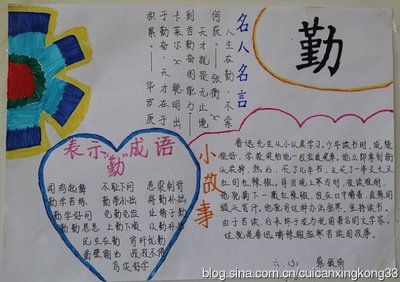 勤
名人名言
人生在勤，不索
何获？——张衡
天才就是无止境
刻苦勤奋的能力——
卡莱尔 聪明出
于勤奋，天才在于
积累。——华罗庚
表示"勤"成语
闻鸡起舞 不耻下问 悬梁刺
勤学苦练 勤能补拙 将勤补拙
勤学好问 克勤克俭 业精于勤
勤勤恳恳 上勤下顺 以勤补拙
民生在勤 宵旰忧勤
凿壁偷光 孜孜不倦
笃实好学
小故事
鲁迅先生从小认真学习。少年读书时，成绩
很好，学校奖给他一枚金质奖章。他立即拿到街
头卖掉，然后，买了几本书，又买了一串又大又
红的红辣椒。每当晚上寒冷时，夜读难耐，
他就摘下一颗红辣椒，放在口中嚼着，直辣的
额头冒汗。他就用这种办法驱寒，坚持读书。
由于苦读，后来终于成为我国著名的文学家。
这就是鲁迅嚼辣椒驱寒苦读的故事。
六.(3)
blog.sina.com.cn/cuicanxingkong33